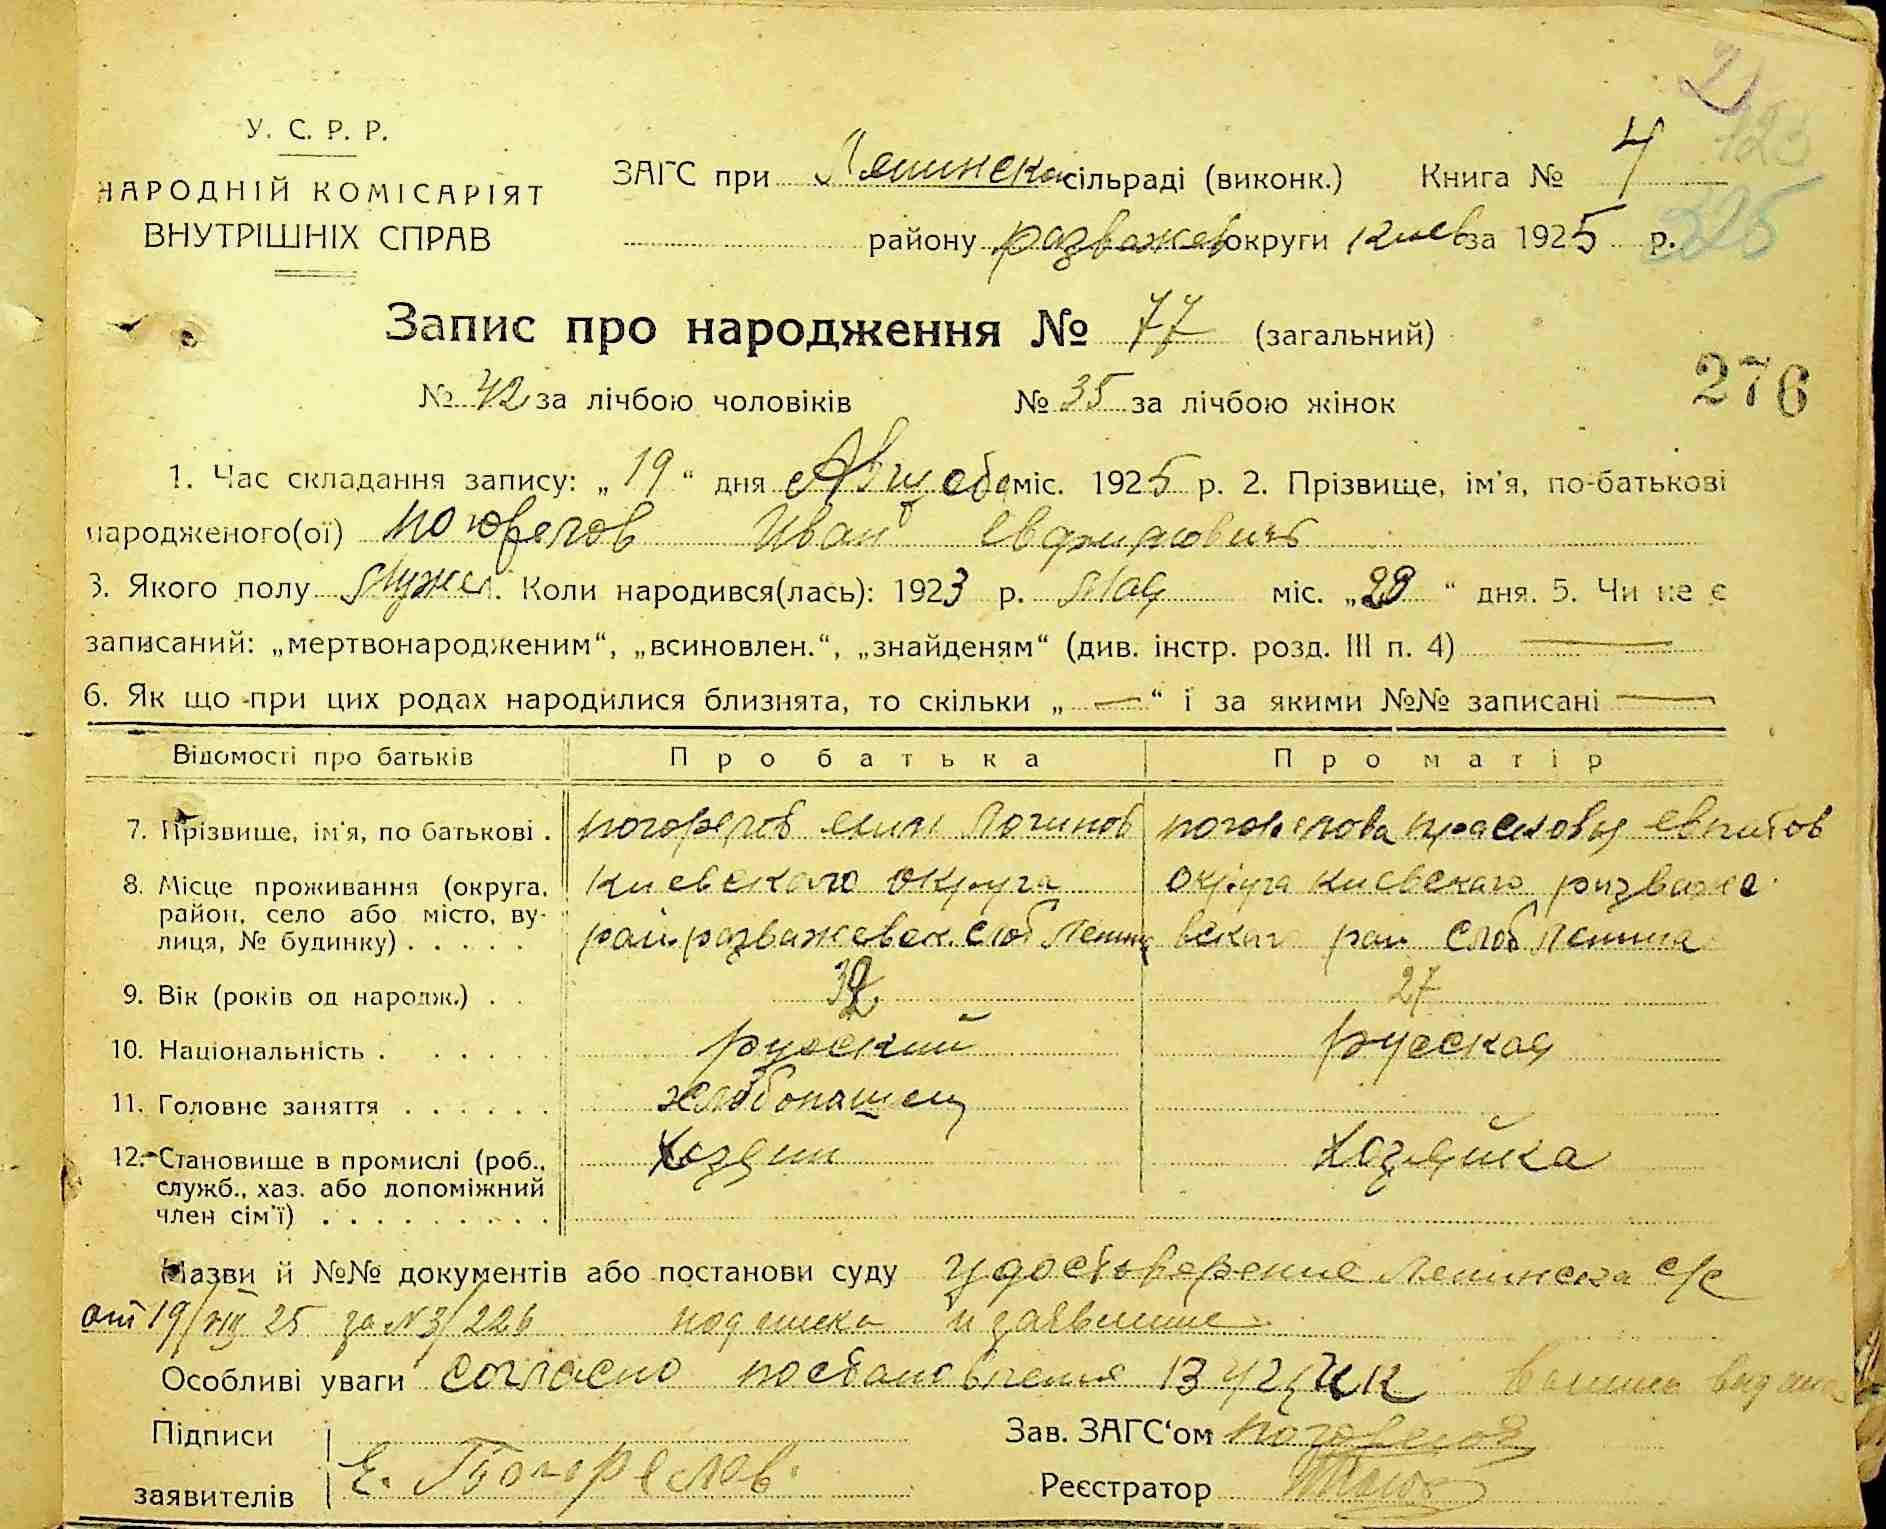 2
123
325
У. С. Р. Р.
НАРОДНІЙ КОМІСАРІЯТ
ВНУТРІШНІХ СПРАВ
ЗАГС при Ленинска сільраді (виконк.) Книга № 4
району розважев округи киев за 1925 р.
Запис про народження № 77 (загальний)
№ 42 за лічбою чоловіків № 35 за лічбою жінок
276
1. Час складання запису: „19“ дня міс. 1925 р. 2. Прізвище, ім'я, по-батькові
народженого(ої) Иван
3. Якого полу Коли народився(лась): 1923 р. мая міс. „ “ дня. 5. Чи не є
записаний: „мертвонародженим“, „всиновлен.“, „знайденям“ (див. інстр. розд. III п. 4) —
6. Як що при цих родах народилися близнята, то скільки „—“ і за якими №№ записані —
Відомості про батьків Про батька Про матір
7. Прізвище, ім'я, по батькові . погорелов логинов погорелова прасковья
8. Місце проживання (округа, район, село або місто, вулиця, № будинку) . . . . .
киевского округа округа киевскаго розваже
рай. розважевск. слоб Ленин вскаго рай слоб Ленина
9. Вік (років од народж.) . . 27
10. Національність . . . . . . русский русская
11. Головне заняття . . . . . . хлебопашец
12. Становище в промислі (роб., служб., хаз. або допоміжний член сім'ї) . . . . . . . . .
хозяин хозяйка
Назви й №№ документів або постанови суду удостоверение Ленинска с/с
от 19/VIII 25 за N3/226 подписка и заявление
Особливі уваги согласно постановления ВУЦИК
Підписи
заявителів Е. Погорелов.
Зав. ЗАГС'ом погорелов
Реєстратор